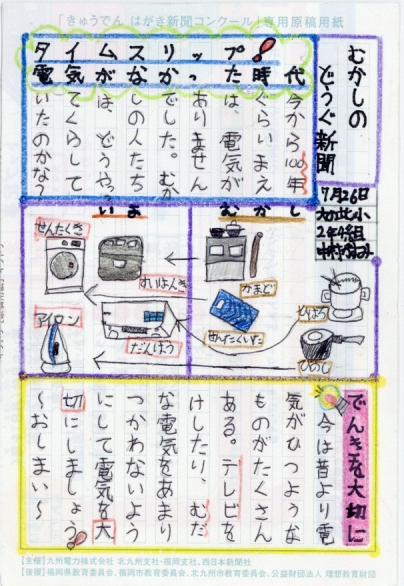 「きゅうでん はがき新聞コンクール」専用原稿用紙
むかしの
どうぐ新聞
7月26日
2年4組
タイムスリップ!
電気がなかった時代
今から100年
ぐらいまえ
は、電気が
ありません
でした。むか
しの人たち
は、どうやっ
てくらして
いたのかな?
むかし
いま
かまど
せんたくいた
ひばち
ひのし
せんたくき
すいはんき
アイロン
だんぼう
でんきを大切に
今は昔より電
気がひつような
ものがたくさん
ある。テレビを
けしたり、むだ
な電気をあまり
つかわないよう
にして電気を大
切にしましょう。
〜おしまい〜
【主催】九州電力株式会社 北九州支社・福岡支社、西日本新聞社
【後援】福岡県教育委員会、福岡市教育委員会、北九州市教育委員会、公益財団法人 理想教育財団